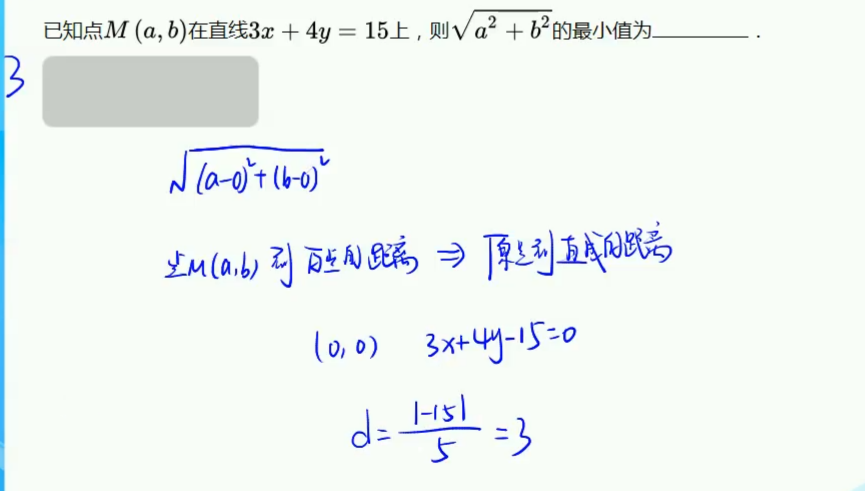 已知点M (a, b)在直线3x + 4y = 15上，则√(a² + b²)的最小值为________．
3
√((a-0)²+(b-0)²)
点M(a,b) 到 原点的距离 ⇒ 原点到直线的距离
(0, 0) 3x+4y-15=0
d= |-15| / 5 =3